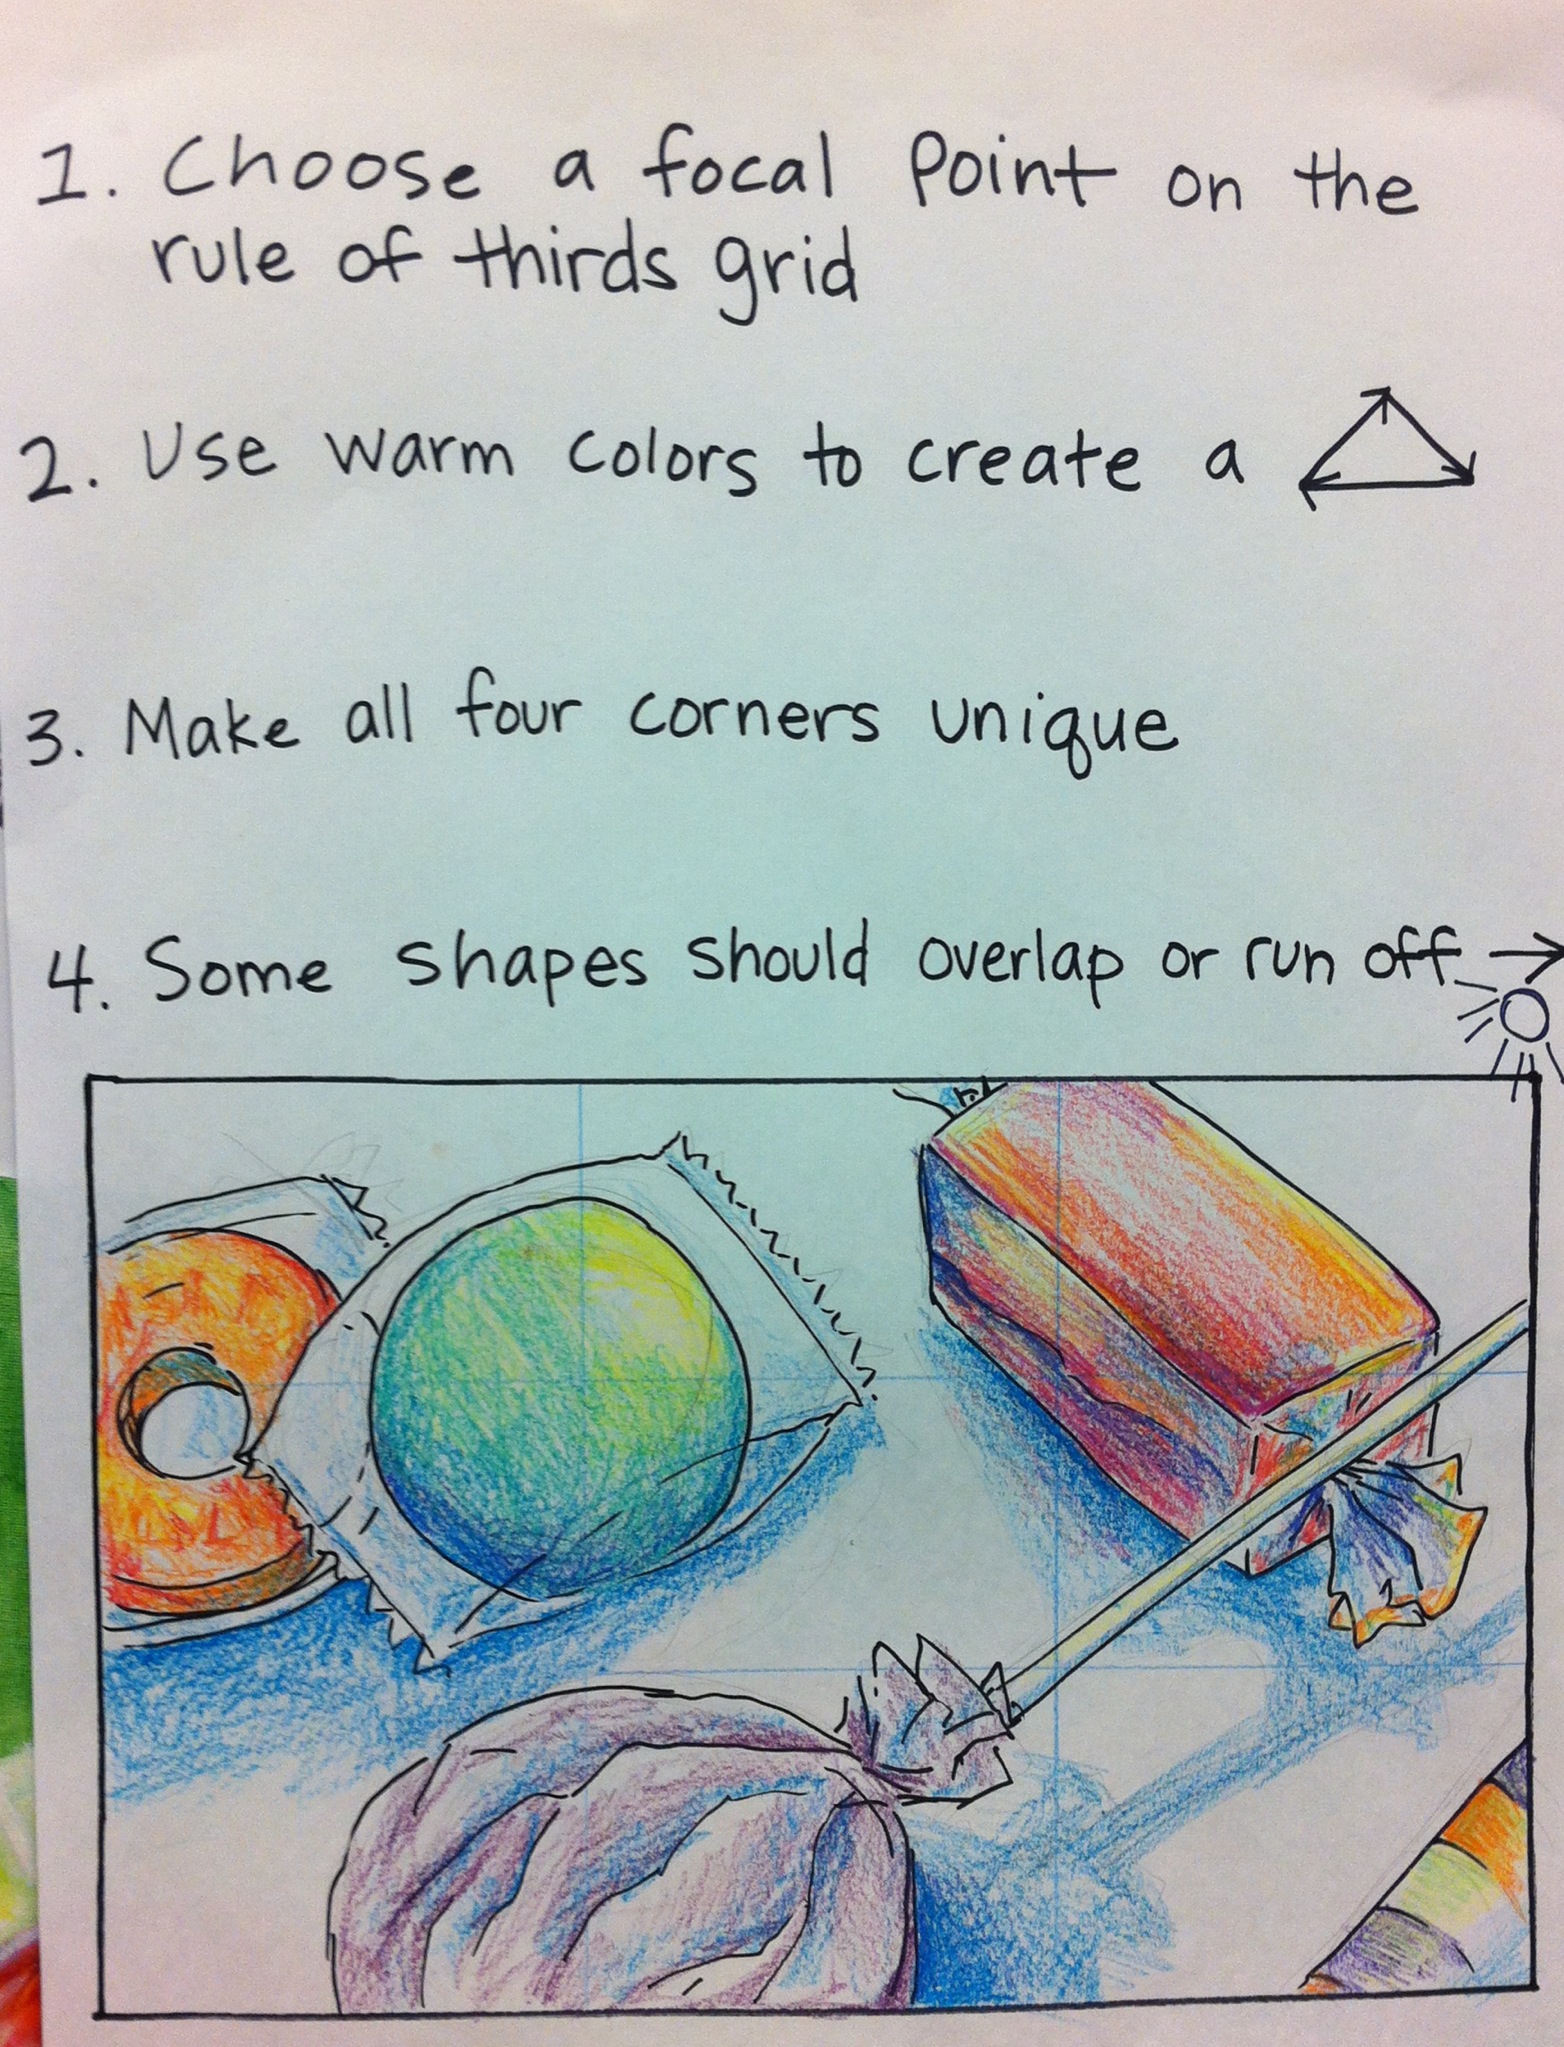 1. Choose a focal Point on the
rule of thirds grid
2. Use warm colors to create a
3. Make all four corners unique
4. Some shapes should overlap or run off